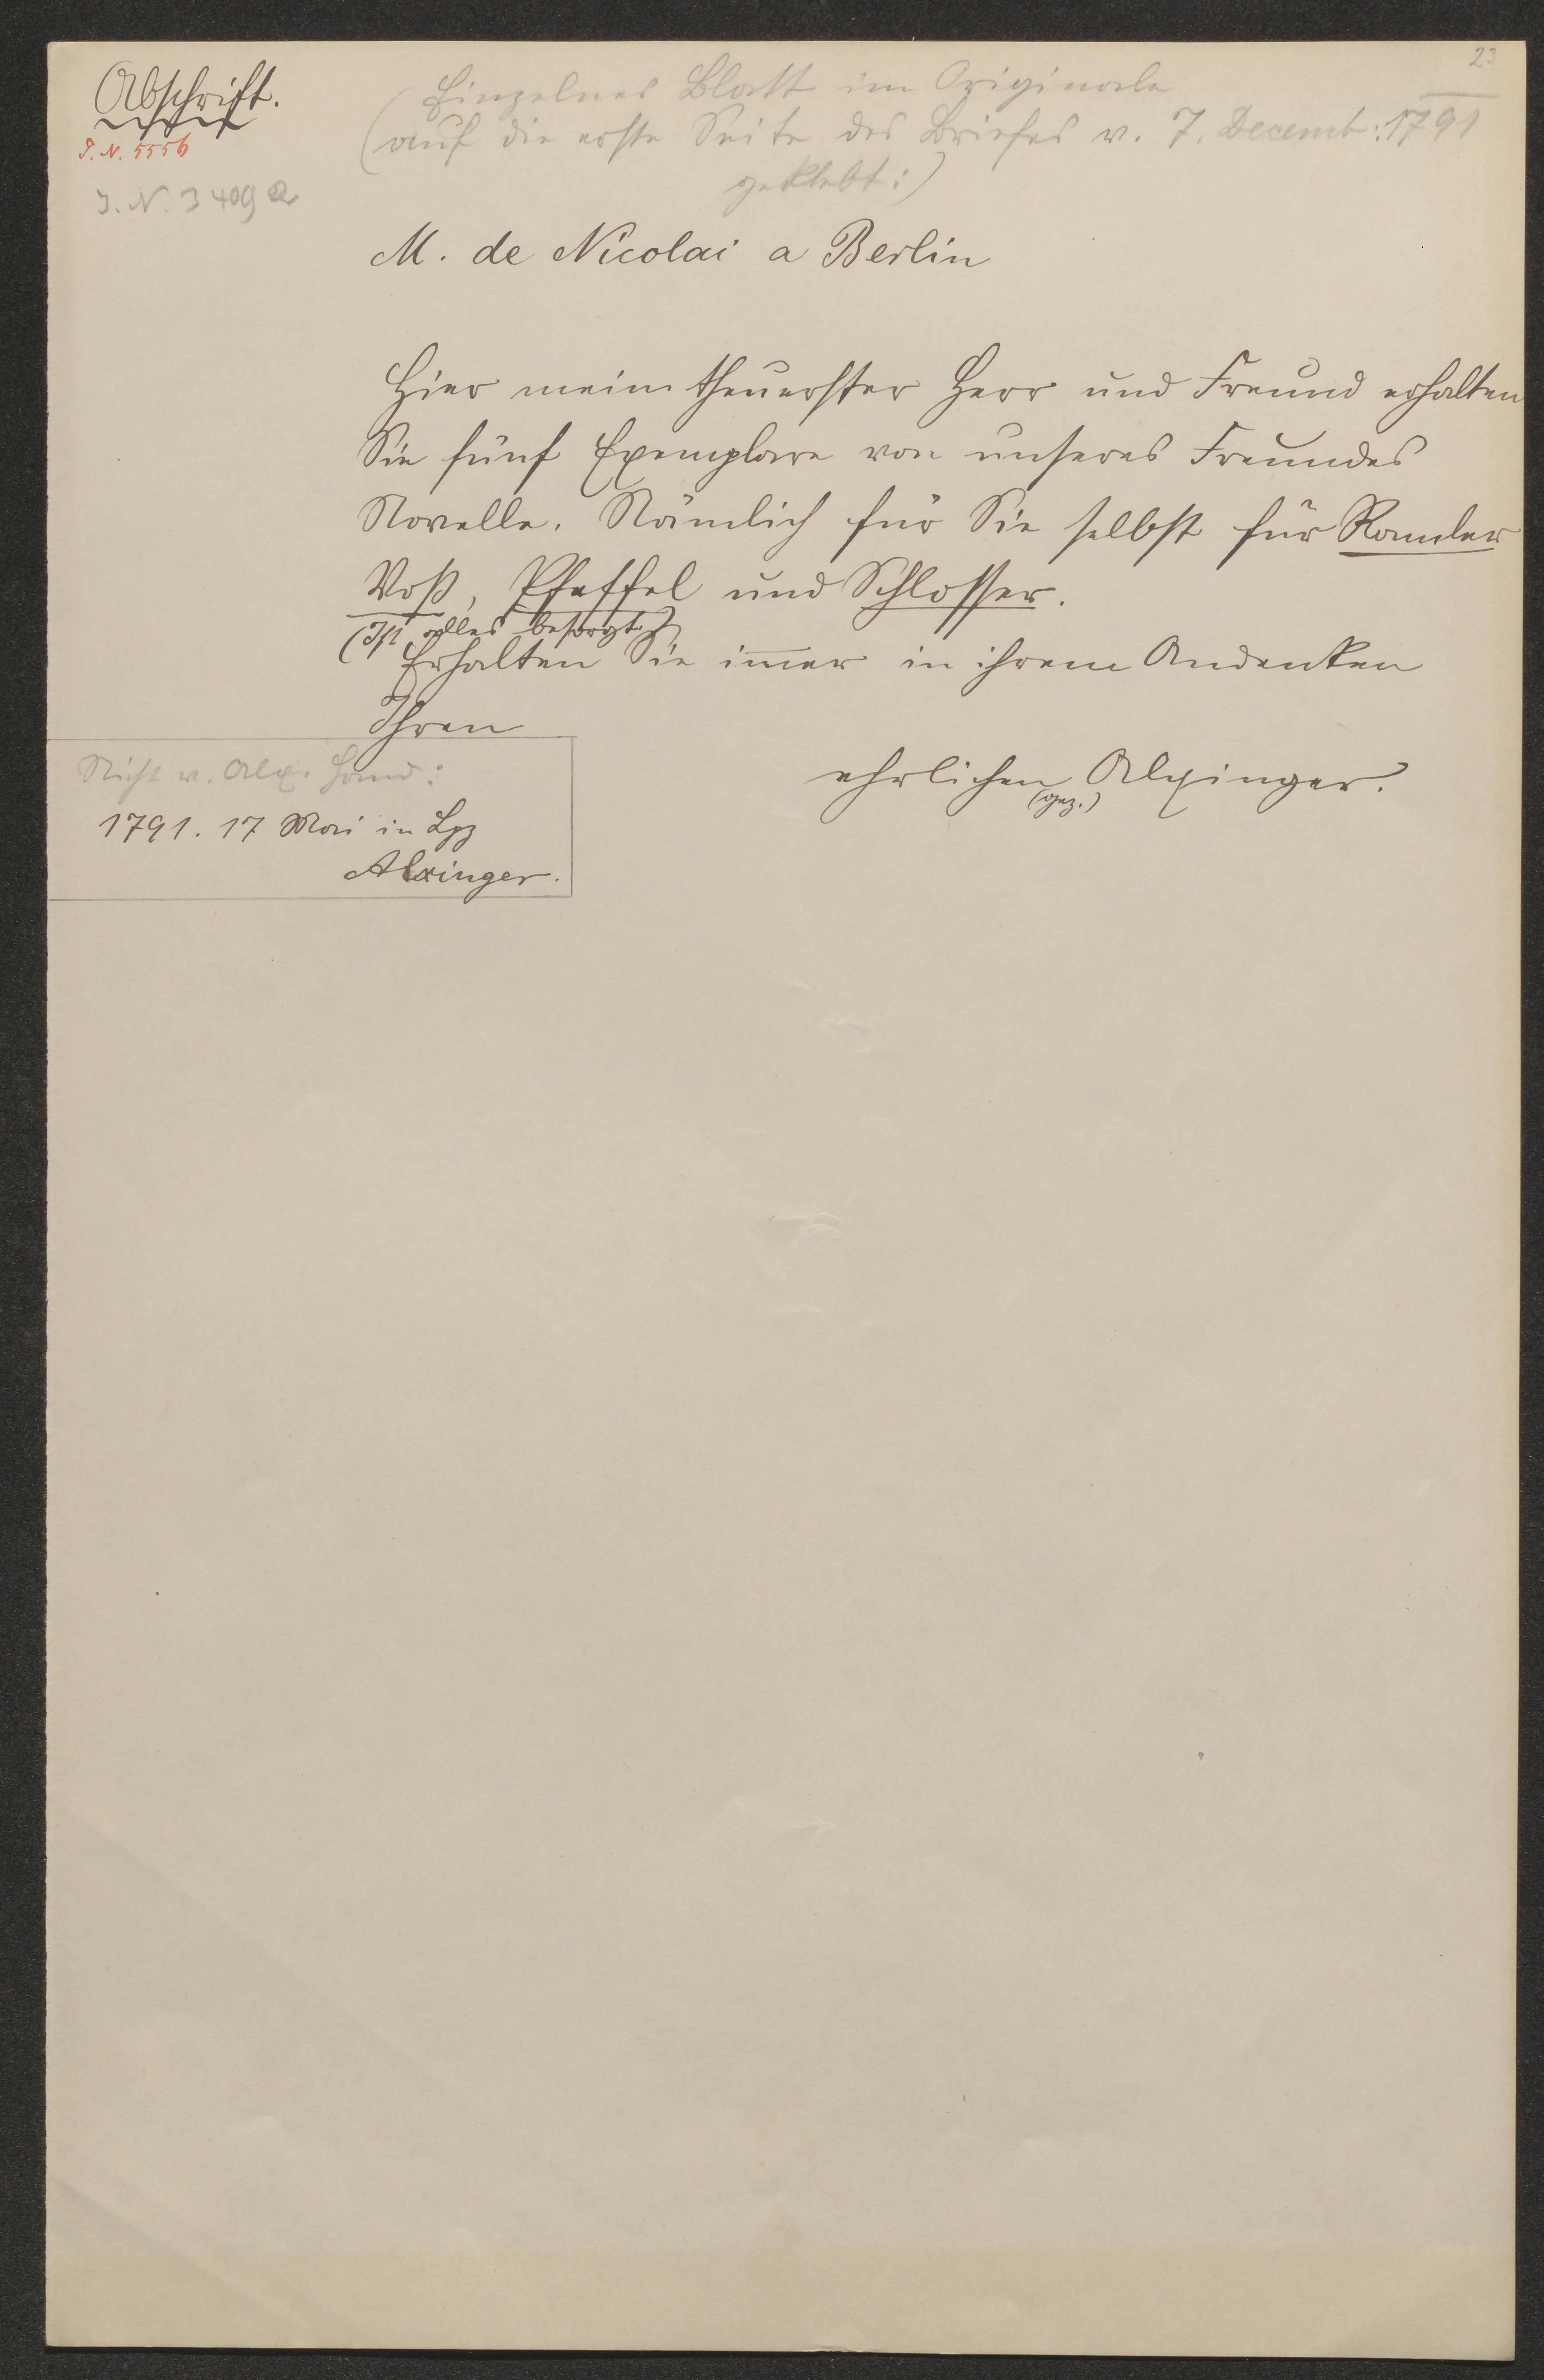 23
Abschrift.
J. N. 5556
J. N. 3409 a
(Einzelnes Blatt im Originale
(auf die erste Seite des Briefes v. 7. Decemb: 1791
geklebt:)
M. de Nicolai a Berlin
Hier mein theuerster Herr und Freund erhalten
Sie fünf Exemplare von unseres Freundes
Novelle. Nämlich für Sie selbst für Ramler
Voß, Pfeffel und Schlosser.
(Ist alles besorgt.)
Erhalten Sie im̄er in ihrem Andenken
Ihren
ehrlichen Alxinger.
(gez.)
Nicht v. Alx. Hand:
1791. 17 Mai in Lpz
Alxinger.